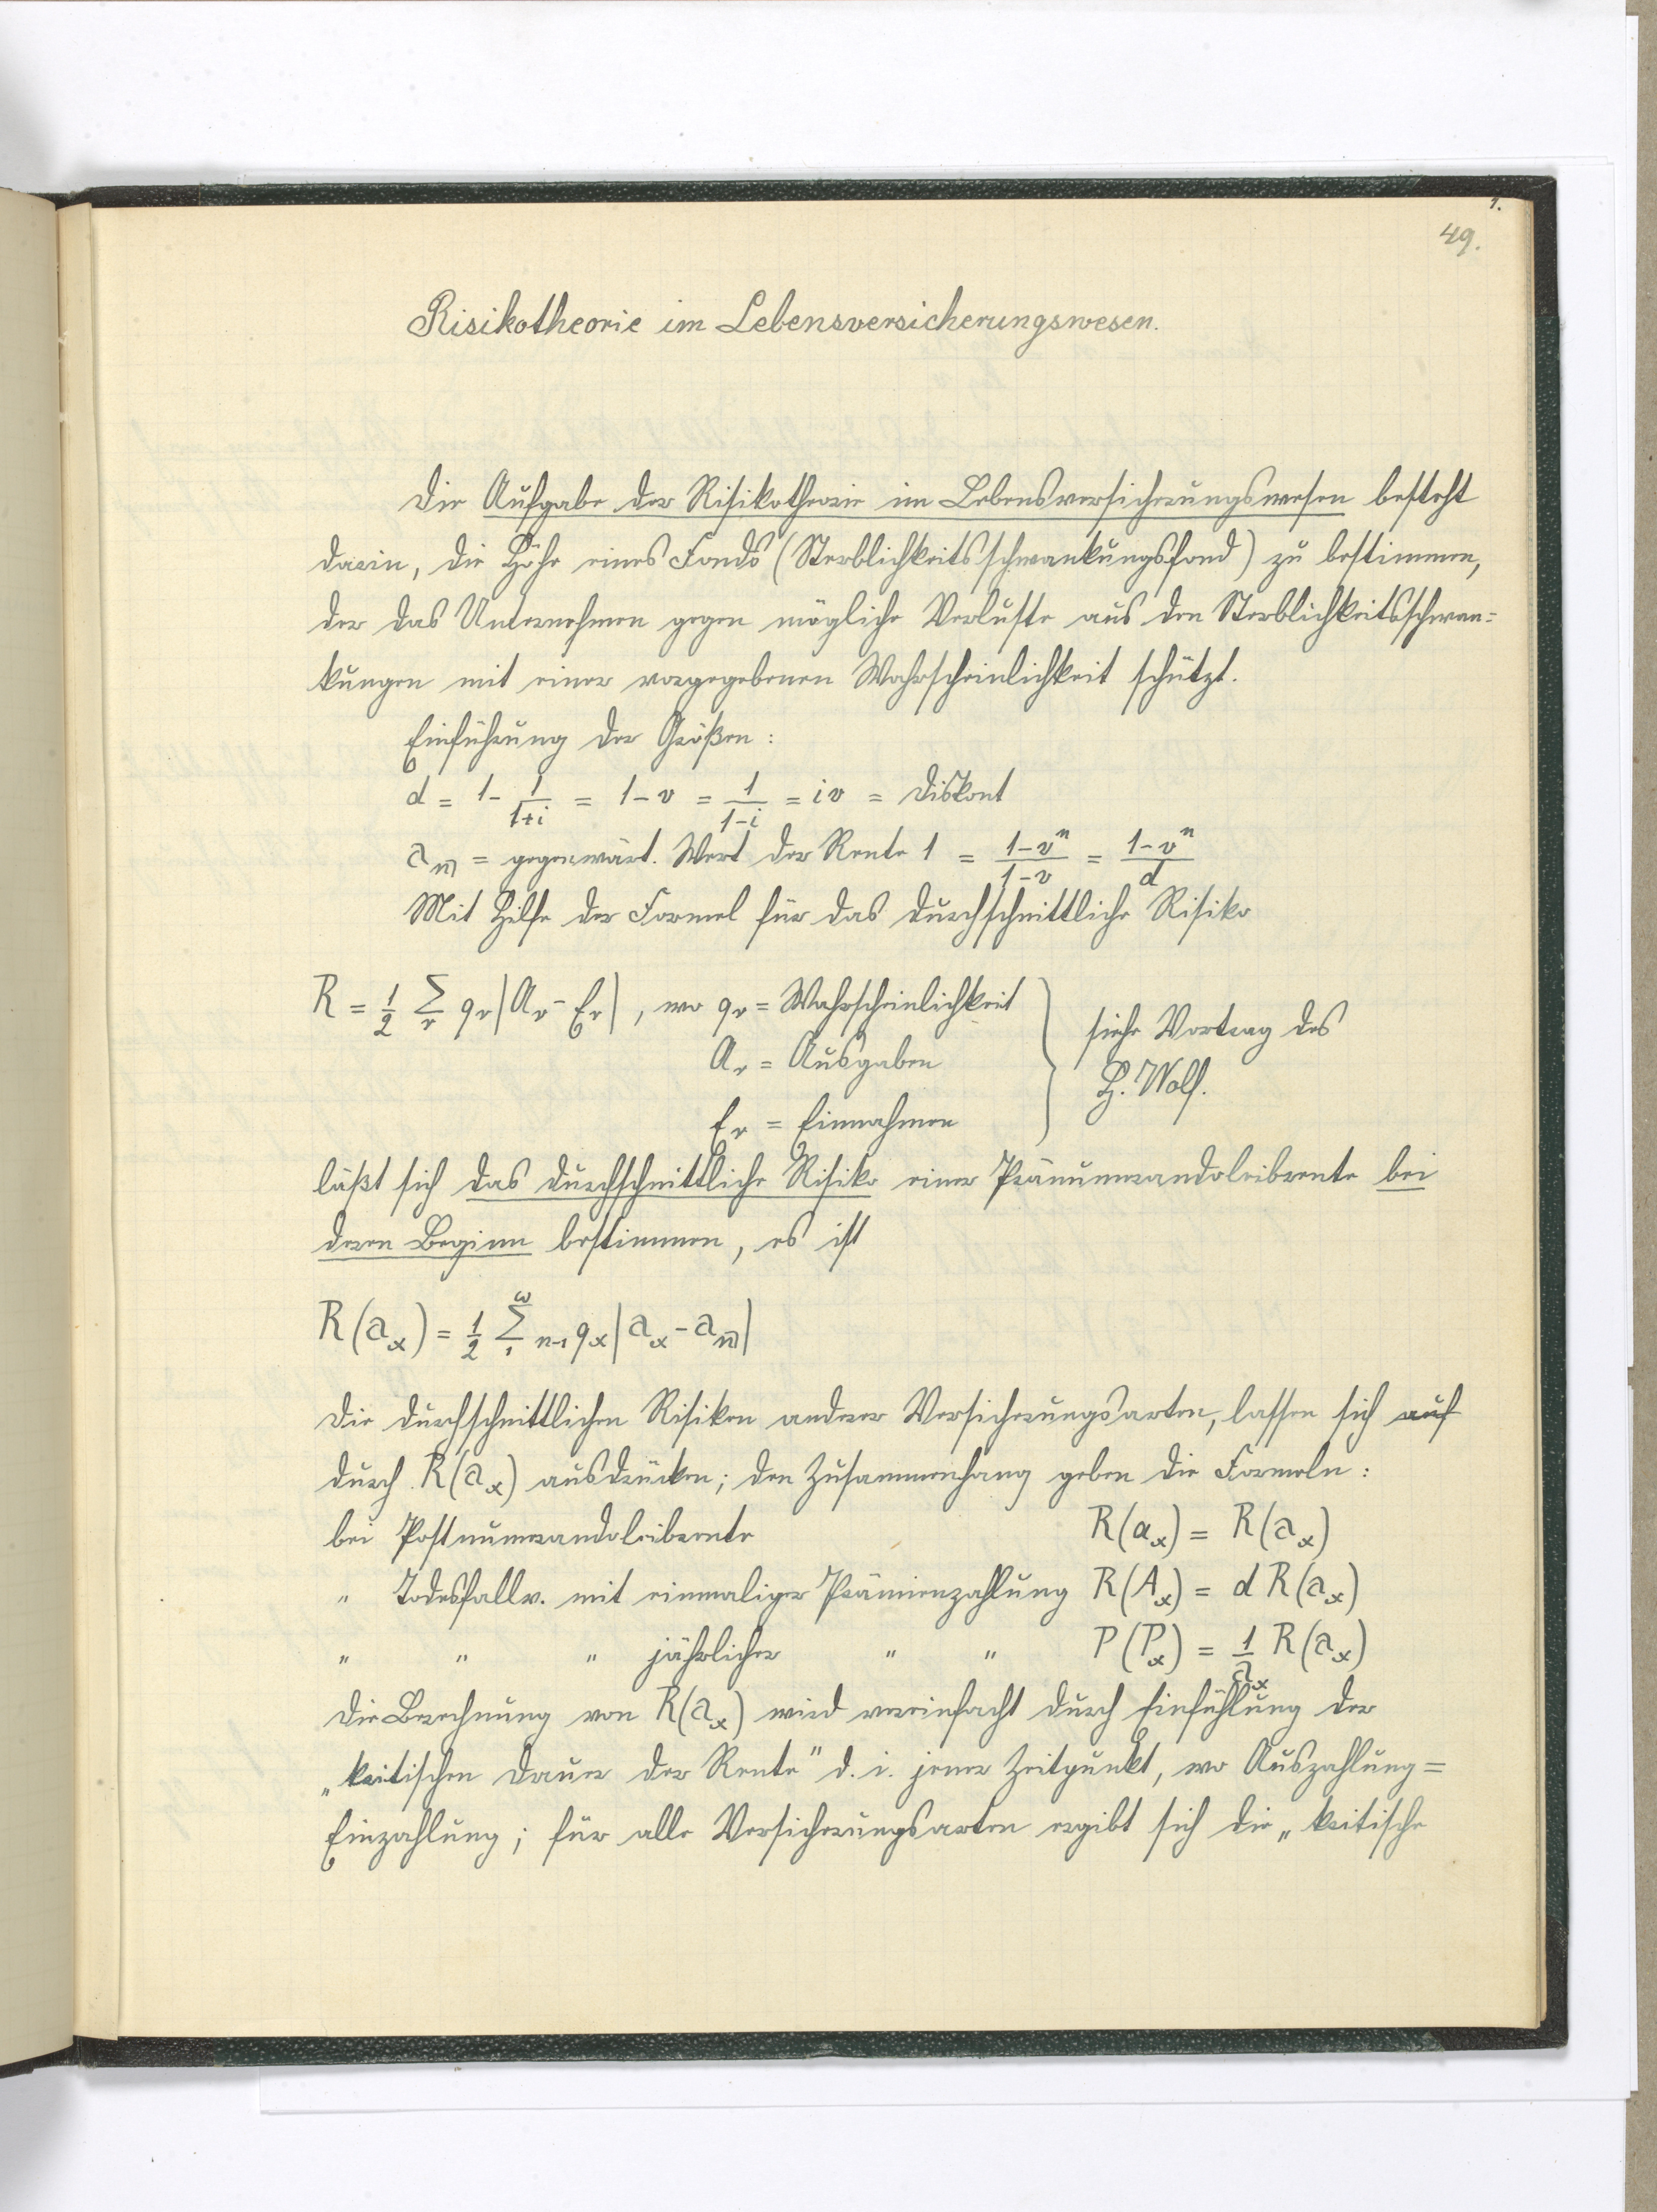 1.
49.
Risikotheorie im Lebensversicherungswesen.
Die Aufgabe der Risikotheorie im Lebensversicherungswesen besteht
darin, die Höhe eines Fonds (Sterblichkeitsschwankungsfond) zu bestimmen,
der das Unternehmen gegen mögliche Verluste aus den Sterblichkeitsschwan=
kungen mit einer vorgegebenen Wahrscheinlichkeit schützt.
Einführung der Größen:
d = 1 - 1/(1+i) = 1 - v = 1/(1-i) = iv = Diskont
a_n̅| = gegenwärt. Wert der Rente 1 = (1-v^n)/(1-v) = (1-v^n)/d
Mit Hilfe der Formel für das durchschnittliche Risiko
R = 1/2 Σ_r q_r |A_r - E_r|, wo q_r = Wahrscheinlichkeit
A_r = Ausgaben
E_r = Einnahmen
siehe Vortrag des
H. Wolf.
läßt sich das durchschnittliche Risiko einer Pränumerandoleibrente bei
deren Beginn bestimmen, es ist
R(a_x) = 1/2 Σ_1^ω n-1 q_x |a_x - a_n̅||
Die durchschnittlichen Risiken anderer Versicherungsarten, lassen sich auf
durch R(a_x) ausdrücken; den Zusammenhang geben die Formeln:
bei Postnumerandoleibrente R(α_x) = R(a_x)
" Todesfallv. mit einmaliger Prämienzahlung R(A_x) = d R(a_x)
" " " jährlicher " " P(P_x) = 1/a_x R(a_x)
Die Berechnung von R(a_x) wird vereinfacht durch Einfühlung der
„kritischen Dauer der Rente" d. i. jener Zeitpunkt, wo Auszahlung =
Einzahlung; für alle Versicherungsarten ergibt sich die „kritische